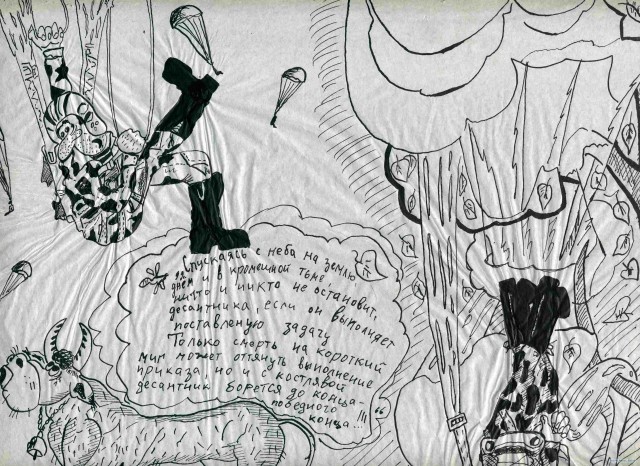 „Спускаясь с неба на землю
днём и в кромешной тьме,
ничто и никто не остановит,
десантника, если он выполняет
поставленую задачу
Только смерть на короткий
миг может оттянуть выполнение
приказа, но и с костлявой
десантник борется до конца-
победного
конца...!!! “